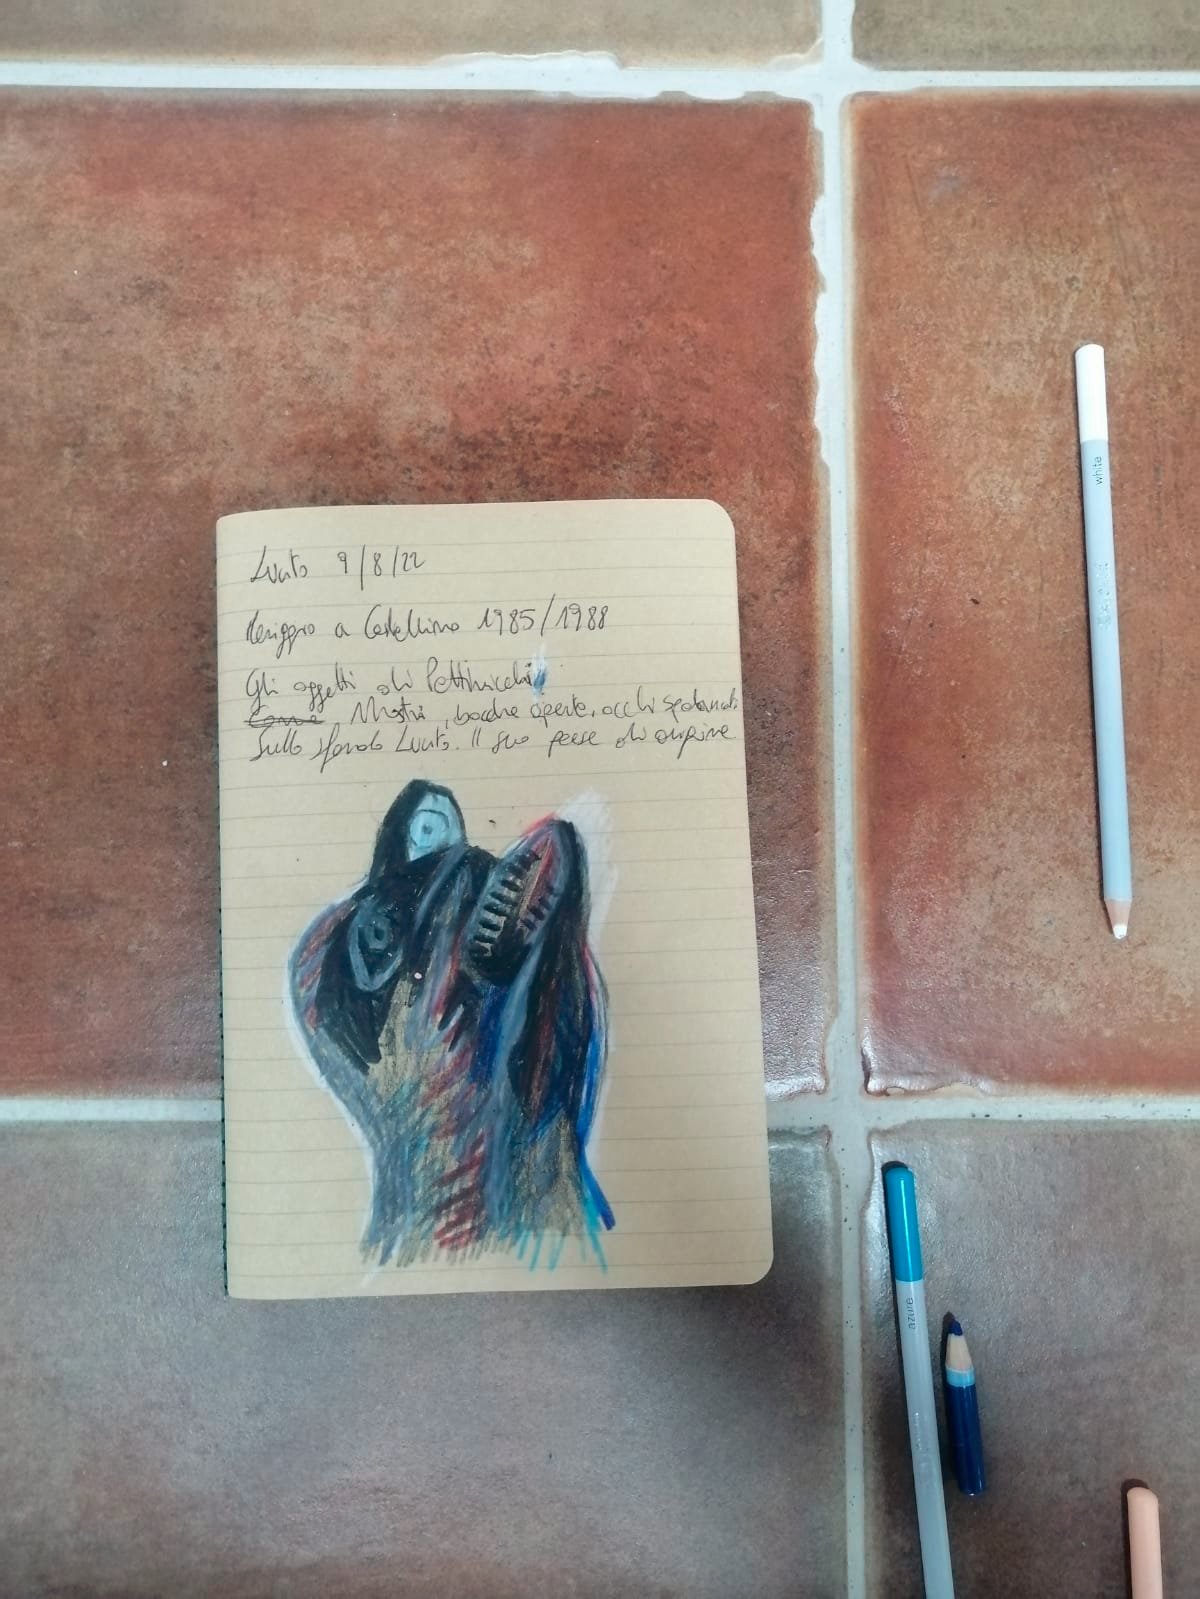 Lucito 9/8/22
Meriggio a Castellino 1985/1988
Gli oggetti di Pettinicchi
Come Mostri, bocche aperte, occhi spalancati
Sullo sfondo Lucito. Il suo paese di origine
white
azure